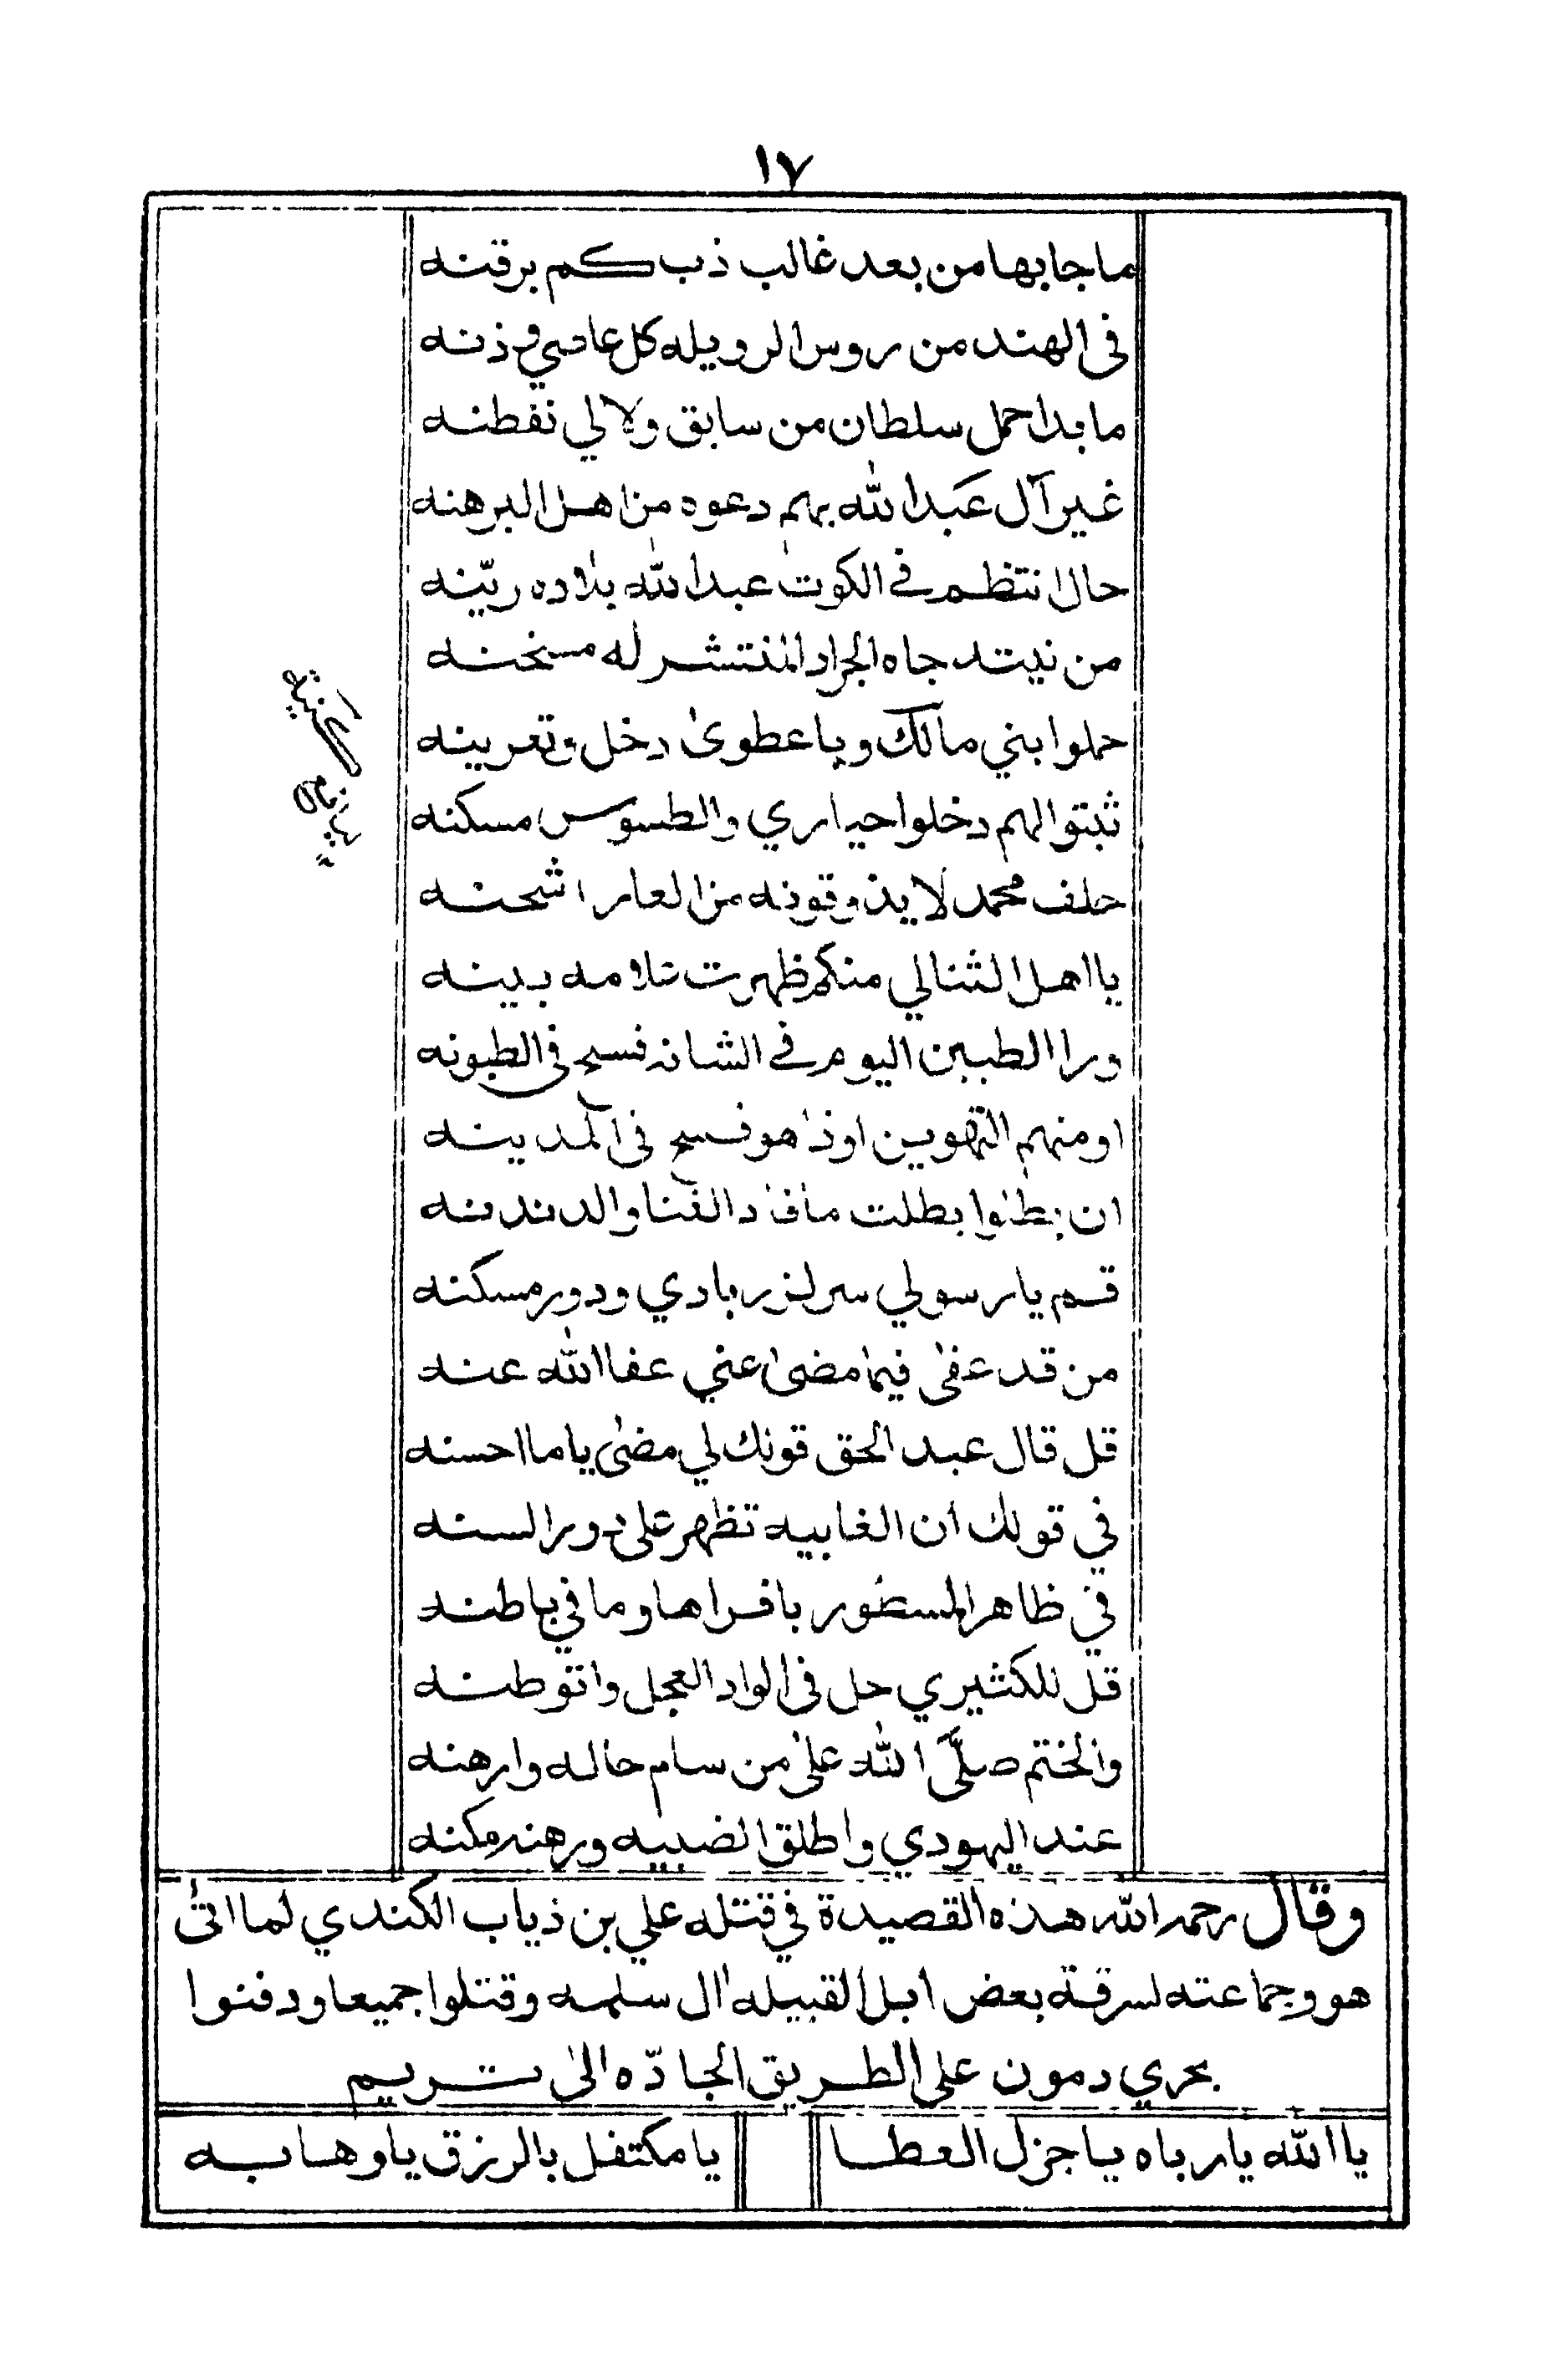 ١٧
ما جا بها من بعد غالب ذب كم برقنه
في الهند من روس الرويله كل عاصي وذنه
ما بدا حمل سلطان من سابق ولا لي نفطنه
غير آل عبدالله بهم دعوه من اهل البرهنه
حال انتظم في الكوت عبدالله بلاده ريّنه
من نيته جاه الجراد المنتشر له مسخنه
حملوا بني مالك وباعطوى دخل وتعرينه
ثبتوا لهم دخلوا حياري والطسوس مسكنه
حلف محمد لا يذوقونه من العار اشحنه
يا اهل الثنا لي منكم ظهرت تلامه بينه
ورا الطبين اليوم في الشانه فسح في الطبونه
او منهم التهوين اوذا هو فسح في المدينه
ان بطنوا بطلت مافاد الغنا والدندنه
قم يا رسولي سر لزربادي ودور مسكنه
من قد عفى فيما مضى عني عفا الله عنه
قل قال عبد الحق قونك لي مضى ياما احسنه
في قولك ان الغابيه تظهر على دور السنه
في ظاهر المسطور باقراها وما في باطنه
قل للكثيري حل في الواد العجل واتوطنه
والختم صلَّى الله على من سام حاله وارهنه
عند اليهودي واطلق الضبيه ورهنه مكنه
وقال رحمه الله هذه القصيدة في قتله علي بن ذياب الكندي لما اتى
هو وجماعته لسرقة بعض ابل القبيله ال سلمه وقتلوا جميعا ودفنوا
بحري دمون على الطريق الجادّه الى تريم
يا الله يا رباه يا جزل العطا يا مكتفل بالرزق يا وهابه